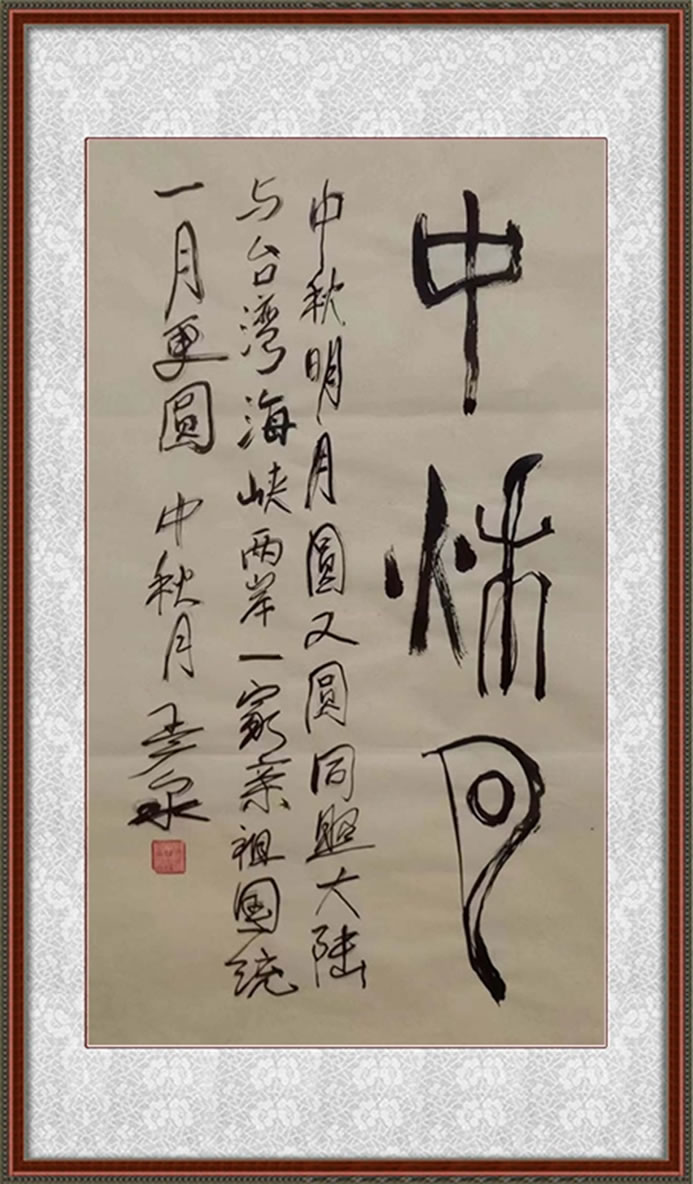 中秌月
中秋明月圆又圆同照大陆
与台湾海峡两岸一家亲祖国统
一月更圆 中秋月